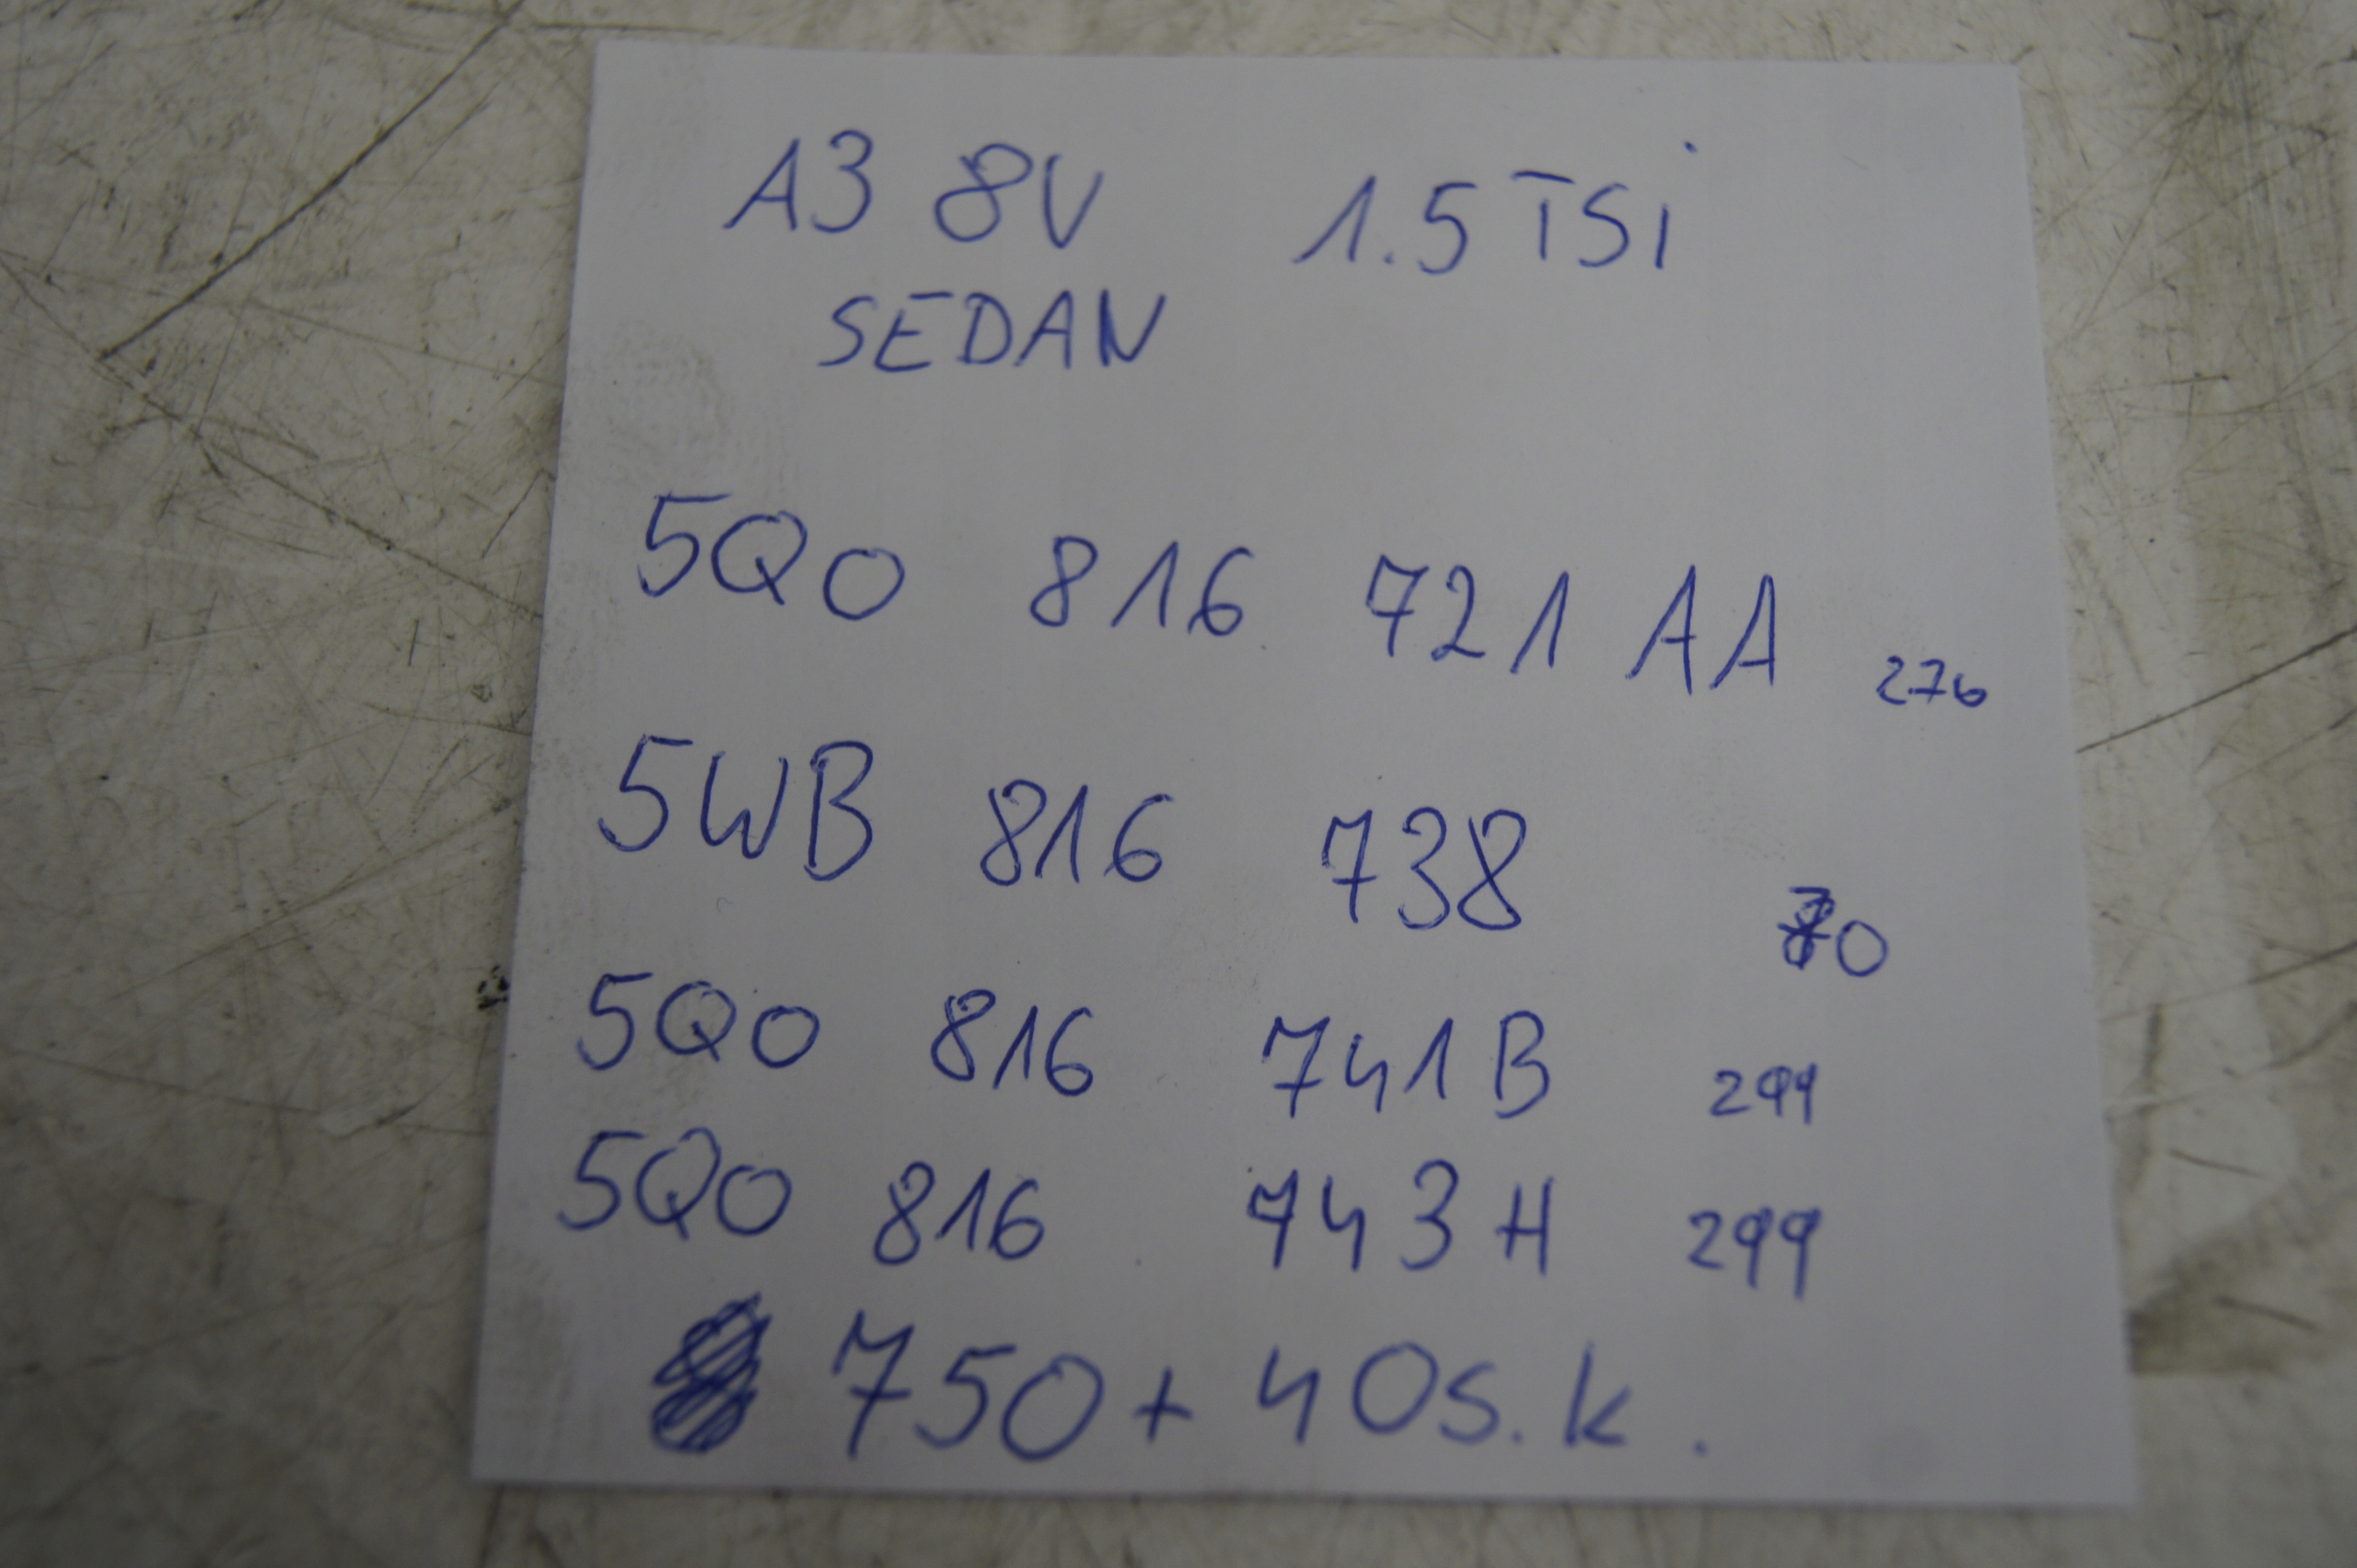 A3 8V 1.5 TSi
SEDAN
5Q0 816 721 AA 276
5WB 816 738
5Q0 816 741B 299
5Q0 816 743H 299
750 + 40 s.k.